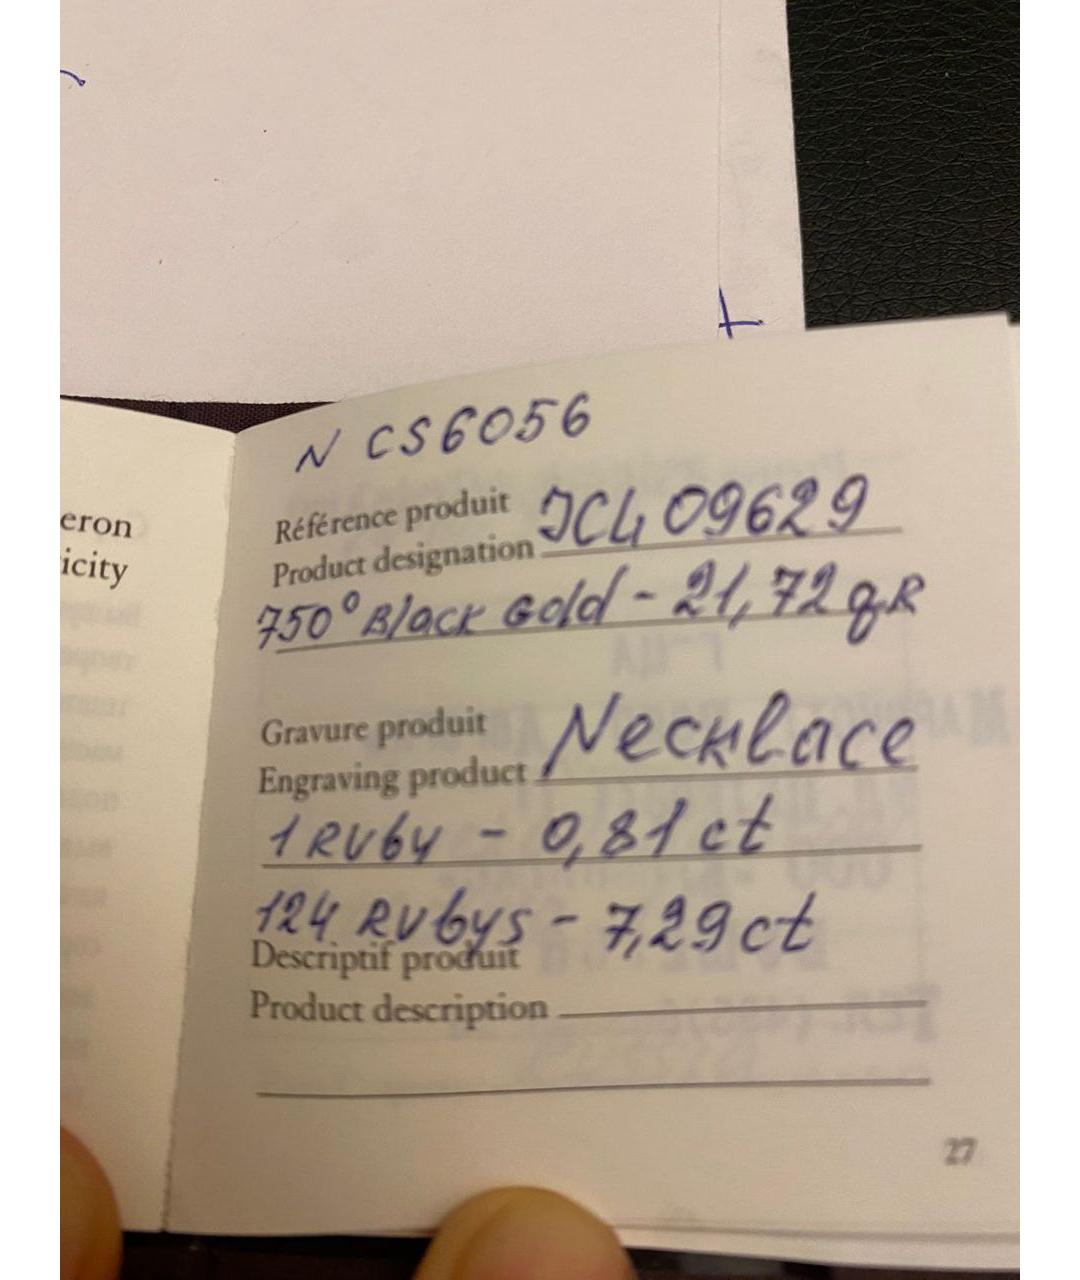 eron
icity
N CS6056
Référence produit
Product designation JCL409629
750° Black Gold - 21,72 gR
Gravure produit
Engraving product Necklace
1 Ruby - 0,81 ct
124 Rubys - 7,29 ct
Descriptif produit
Product description
27